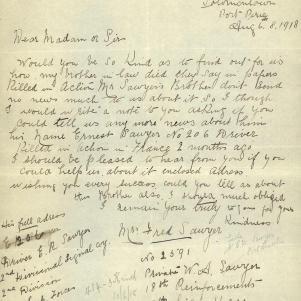 Solomontown
Port Pirie
Aug 6. 8. 1918
Dear Madam or Sir
Would you be so kind as to find out for us
how my Mother in law died they say in papers
Killed in Action Mr Sawyer's Brother don't send
no news much to us about it so I though
I would write a note to you asking if you
could tell us any more news about them
his name Ernest Sawyer No 206 Driver
Killed in action in France 2 months ago
I should be pleased to hear from you if you
could help us about it enclosed adress
wishing you every sucess could you tell us about
this Brother also I should much obliged
I remain Yours truly to you for your
Kindness
Mrs Fred Sawyer
His full adress
206
Driver E. R. Sawyer
2nd Divisional Signal Coy
2nd Division
Forces
No 2591
Private W. S. Sawyer
18th Reinforcements